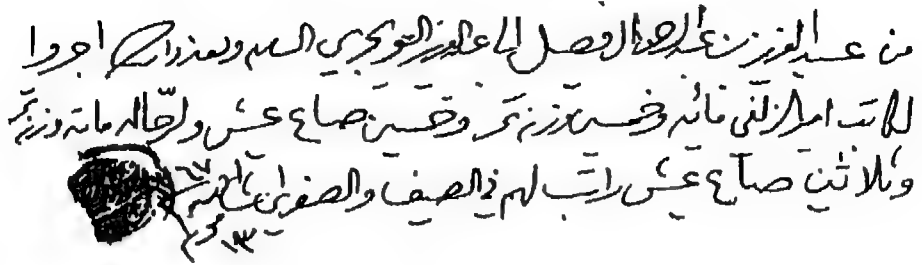 من عبدالعزيز بن عبدالرحمن ال فيصل الى عبدالعزيز التويجري السلام وبعد اجروا
للكاتب مائة وخمسين وزنة تمر وخمسين صاع عيش ولرجاله مائة وزنة تمر
وثلاثين صاع عيش راتب لهم في الصيف والصفري
١٣ محرم